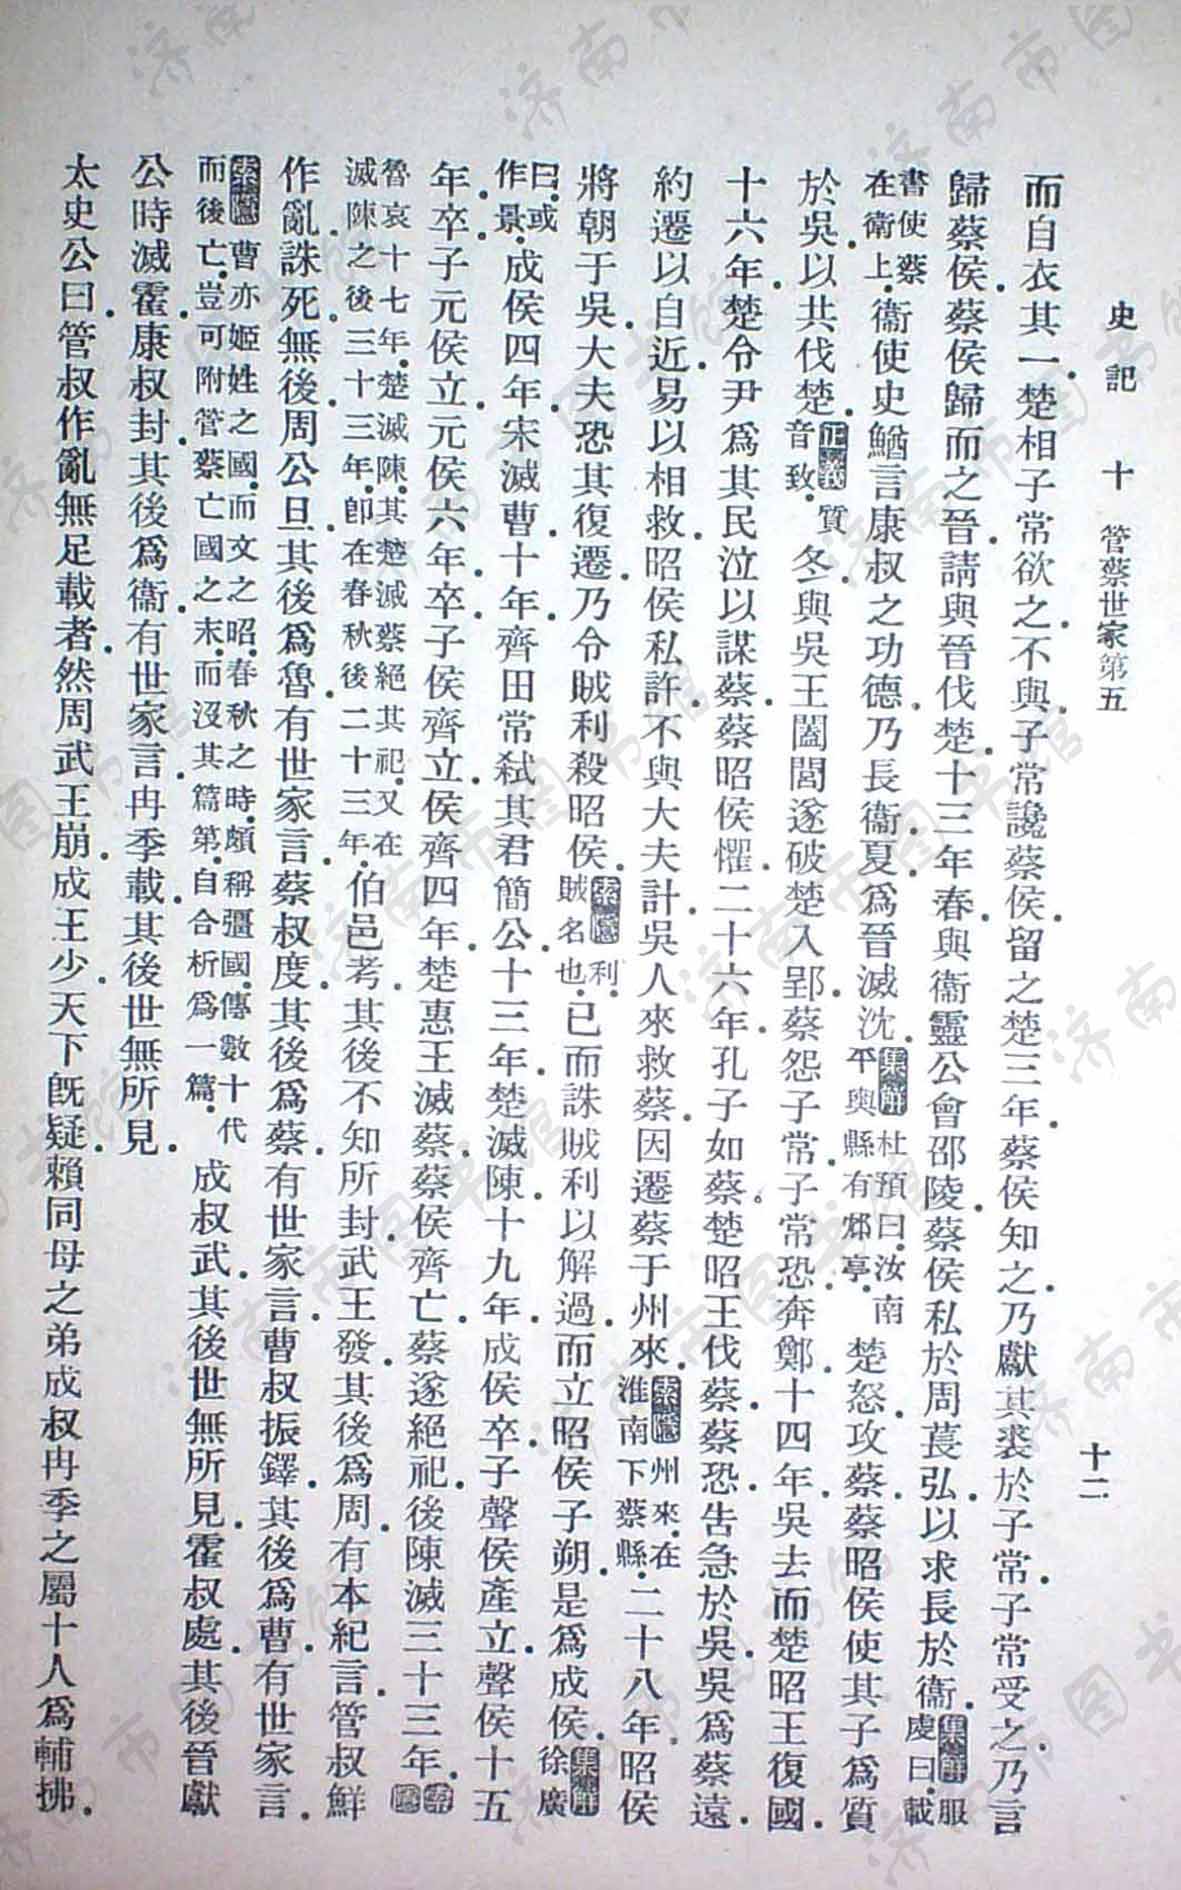 史記　十　管蔡世家第五　十二
而自衣其一.楚相子常欲之.不與.子常讒蔡侯.留之楚三年.蔡侯知之.乃獻其裘於子常.子常受之.乃言
歸蔡侯.蔡侯歸而之晉.請與晉伐楚.十三年春.與衞靈公會邵陵.蔡侯私於周萇弘.以求長於衞.集解服虔曰.載
書使蔡在衛上.衞使史鰌言康叔之功德.乃長衞.夏.爲晉滅沈.集解杜預曰.汝南平輿縣有䢵亭.楚怒.攻蔡.蔡昭侯使其子爲質
於吳.以共伐楚.正義質音致.冬.與吳王闔閭遂破楚入郢.蔡怨子常.子常恐.奔鄭.十四年.吳去而楚昭王復國.
十六年.楚令尹爲其民泣以謀蔡.蔡昭侯懼.二十六年.孔子如蔡.楚昭王伐蔡.蔡恐.告急於吳.吳爲蔡遠.
約遷以自近.易以相救.昭侯私許.不與大夫計.吳人來救蔡.因遷蔡于州來.索隱州來.在淮南下蔡縣.二十八年.昭侯
將朝于吳.大夫恐其復遷.乃令賊利殺昭侯.索隱利.賊名也.已而誅賊利以解過.而立昭侯子朔.是爲成侯.集解徐廣
曰.或作景.成侯四年.宋滅曹.十年.齊田常弒其君簡公.十三年.楚滅陳.十九年.成侯卒.子聲侯產立.聲侯十五
年卒.子元侯立.元侯六年卒.子侯齊立.侯齊四年.楚惠王滅蔡.蔡侯齊亡.蔡遂絕祀.後陳滅三十三年.索隱
魯哀十七年.楚滅陳.其楚滅蔡絕其祀.又在滅陳之後三十三年.卽在春秋後二十三年.伯邑考.其後不知所封.武王發.其後爲周.有本紀言.管叔鮮
作亂誅死.無後.周公旦.其後爲魯.有世家言.蔡叔度.其後爲蔡.有世家言.曹叔振鐸.其後爲曹.有世家言.
索隱曹亦姬姓之國.而文之昭.春秋之時.頗稱彊國.傳數十代而後亡.豈可附管蔡亡國之末.而沒其篇第.自合析爲一篇.成叔武.其後世無所見.霍叔處.其後晉獻
公時滅霍.康叔封.其後爲衞.有世家言.冉季載.其後世無所見.
太史公曰.管叔作亂.無足載者.然周武王崩.成王少.天下旣疑.賴同母之弟成叔冉季之屬十人爲輔拂.
济南市图书馆